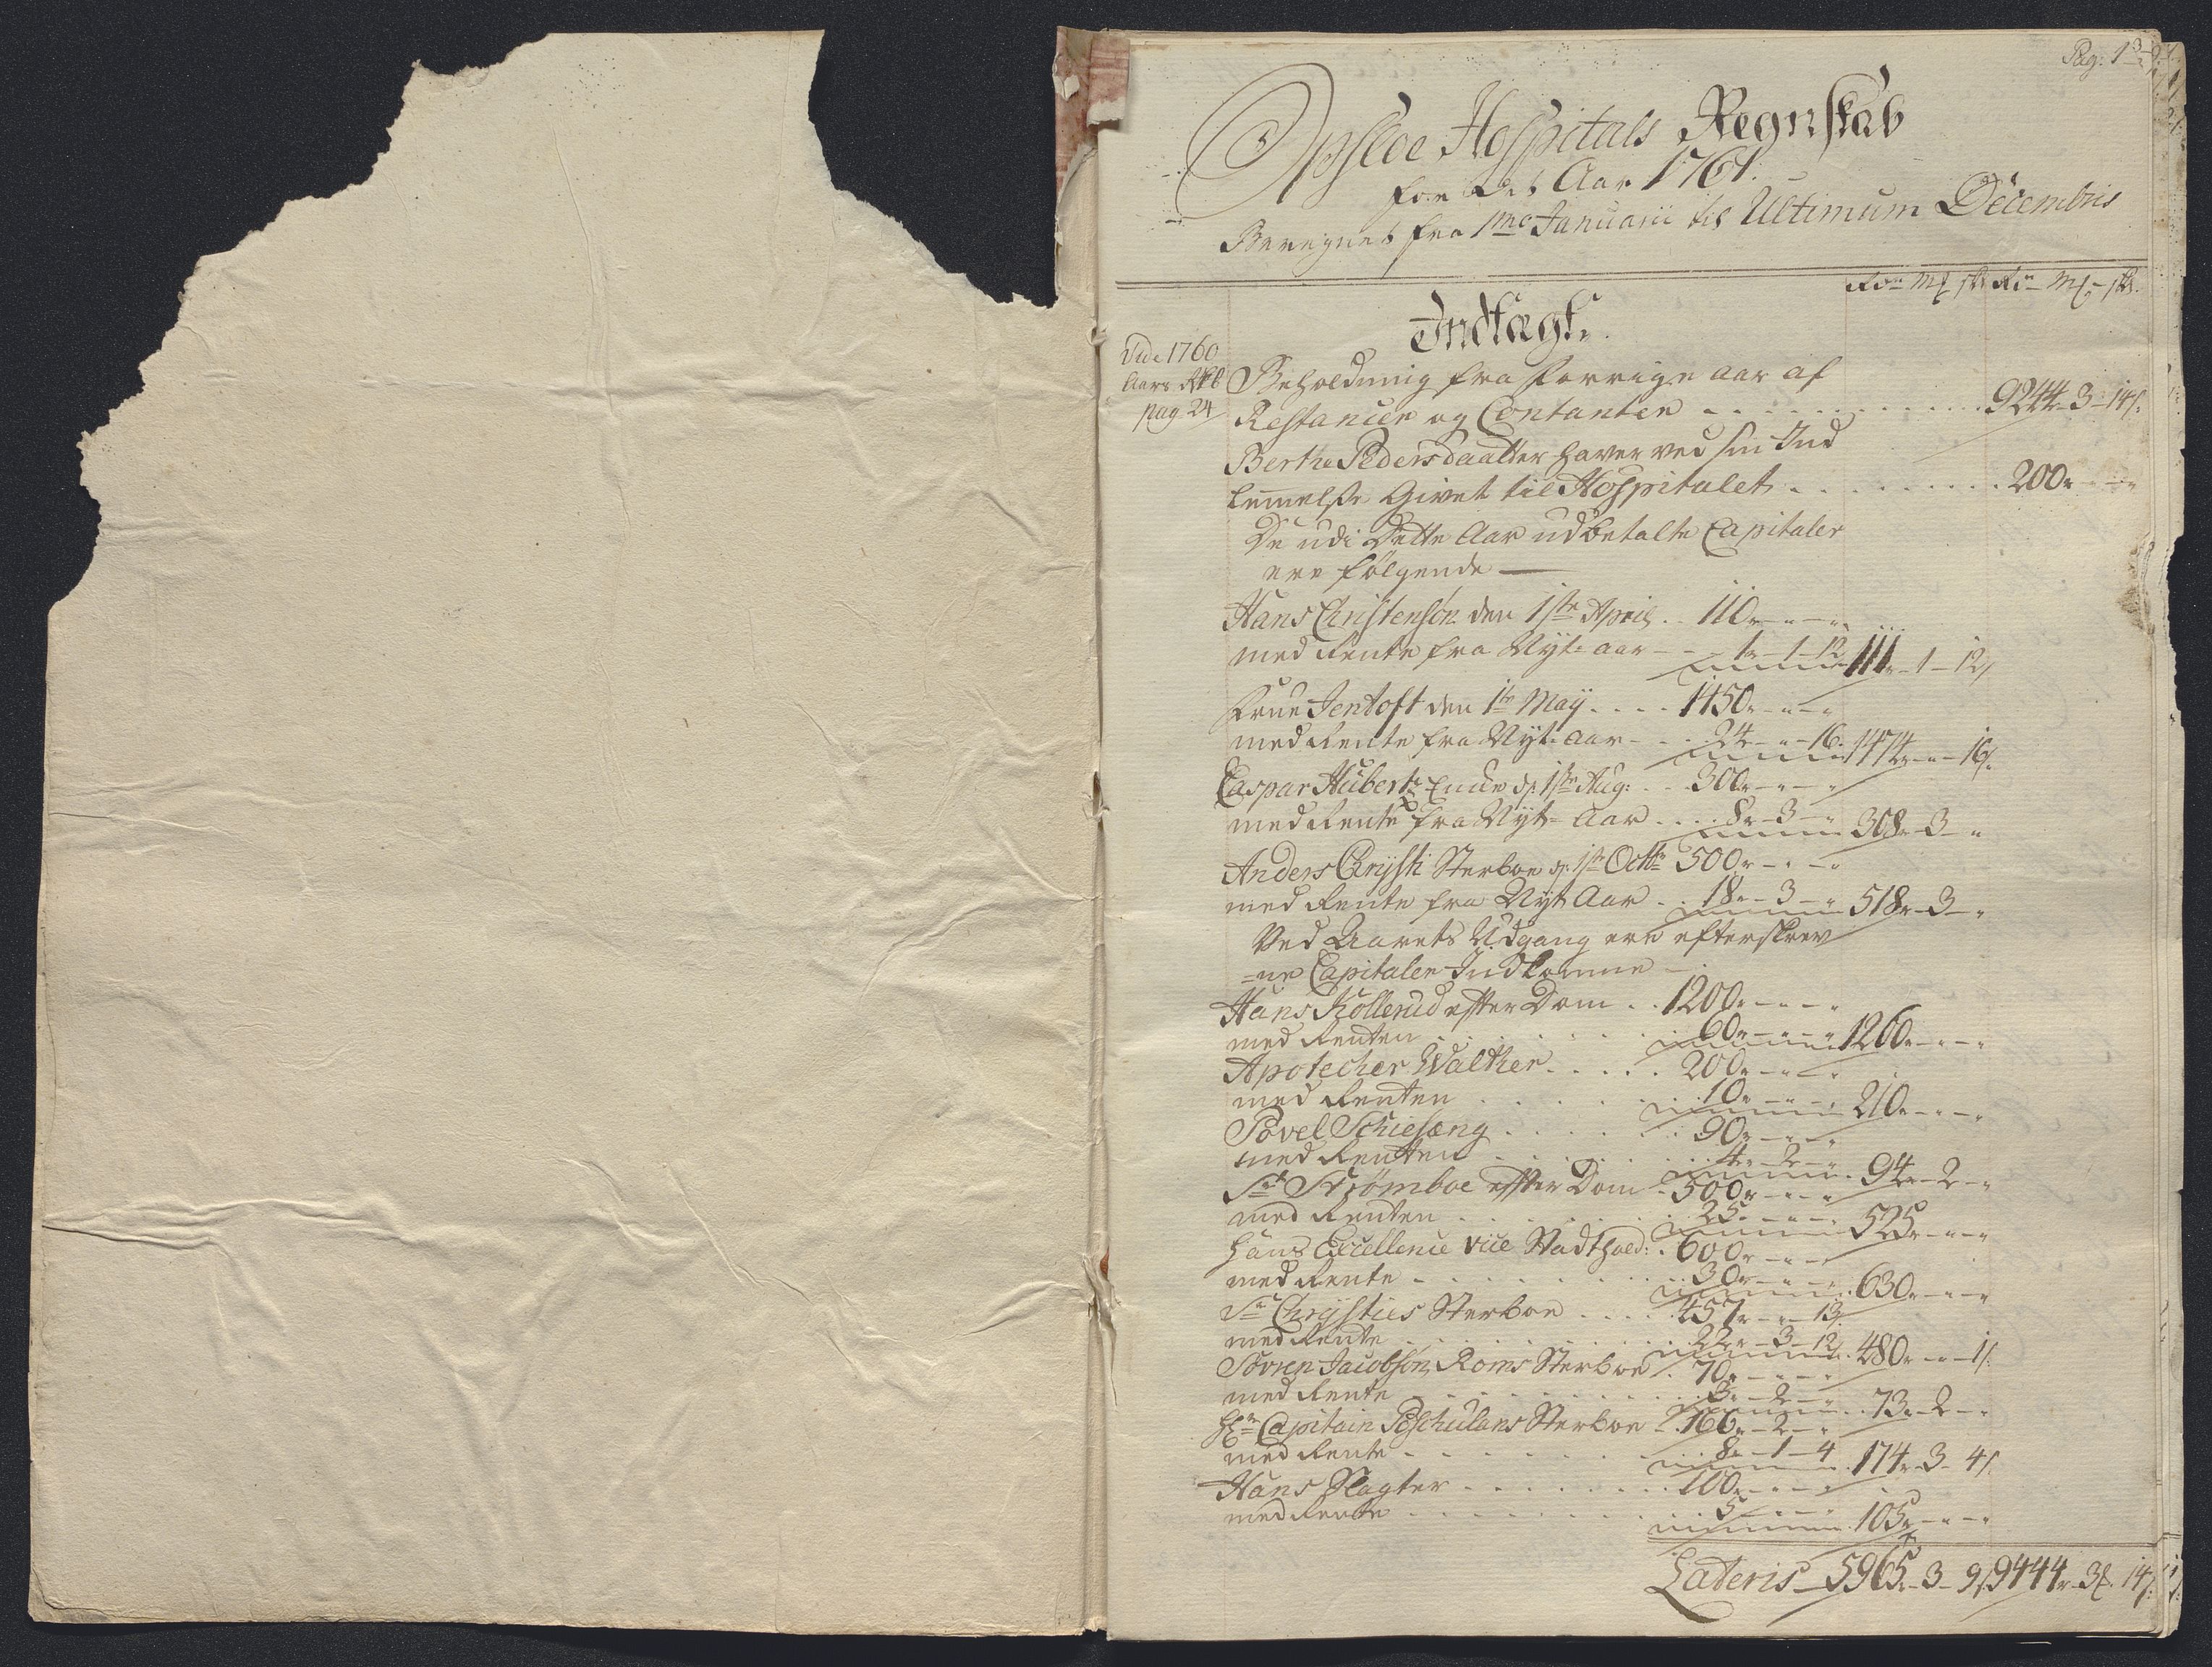 Pag: 1
Opsloe Hospitals Regnskab
for det Aar 1761.
Beregnet fra 1mo Januarii til Ultimum Decembris
Rdr mk sk Rdr mk sk
Indtægt.
Vide 1760
Aars
pag. 24
Beholdning fra forrige aar af
Restancer og Contanter 9244 - 3 - 14
Berthe Pedersdaatter haver ved sin Ind
lemmelse Givet til Hospitalet 200
De udi Dette Aar udbetalte Capitaler
ere følgende
Hans Christensøn den 1ste April 110
med Rente fra Nyt-aar 1 - 1 - 12 111 - 1 - 12
Frue Jentoft den 1te May 1450
med Rente fra Nyt-aar 24 - " - 16 1474 - " - 16
Caspar Huberts Enke d. 1ste Aug: 300
med Rente fra Nyt-Aar 8 - 3 - " 308 - 3 - "
Anders Chrysti Sterboe d. 1ste Octbr 500
med Rente fra Nyt Aar 18 - 3 - " 518 - 3 - "
Ved Aarets Udgang ere efterskrev
=ne Capitaler Indkomne
Hans Kollerud efter Dom 1200
med Renten 60 1260
Apotecher Walther 200
med Renten 10 210
Povel Schiefæng 90
med Renten 4 - 2 - " 94 - 2 - "
Sr Strømboe efter Dom 500
med Renten 25 525
Hans Excellence Vice Stadthold: 600
med Rente 30 630
Sr Chrysties Sterboe 457 - " - 13
med Rente 22 - 3 - 12 480 - " - 1
Søren Jacobsøn Roms Sterboe 70
med Rente 3 - 2 - " 73 - 2 - "
Hr Capitain Peschulans Sterboe 166 - 2 - "
med Rente 8 - 1 - 4 174 - 3 - 4
Hans Slagter 100
med Rente 5 105
Lateris 5965 - 3 - 9 9444 - 3 - 14